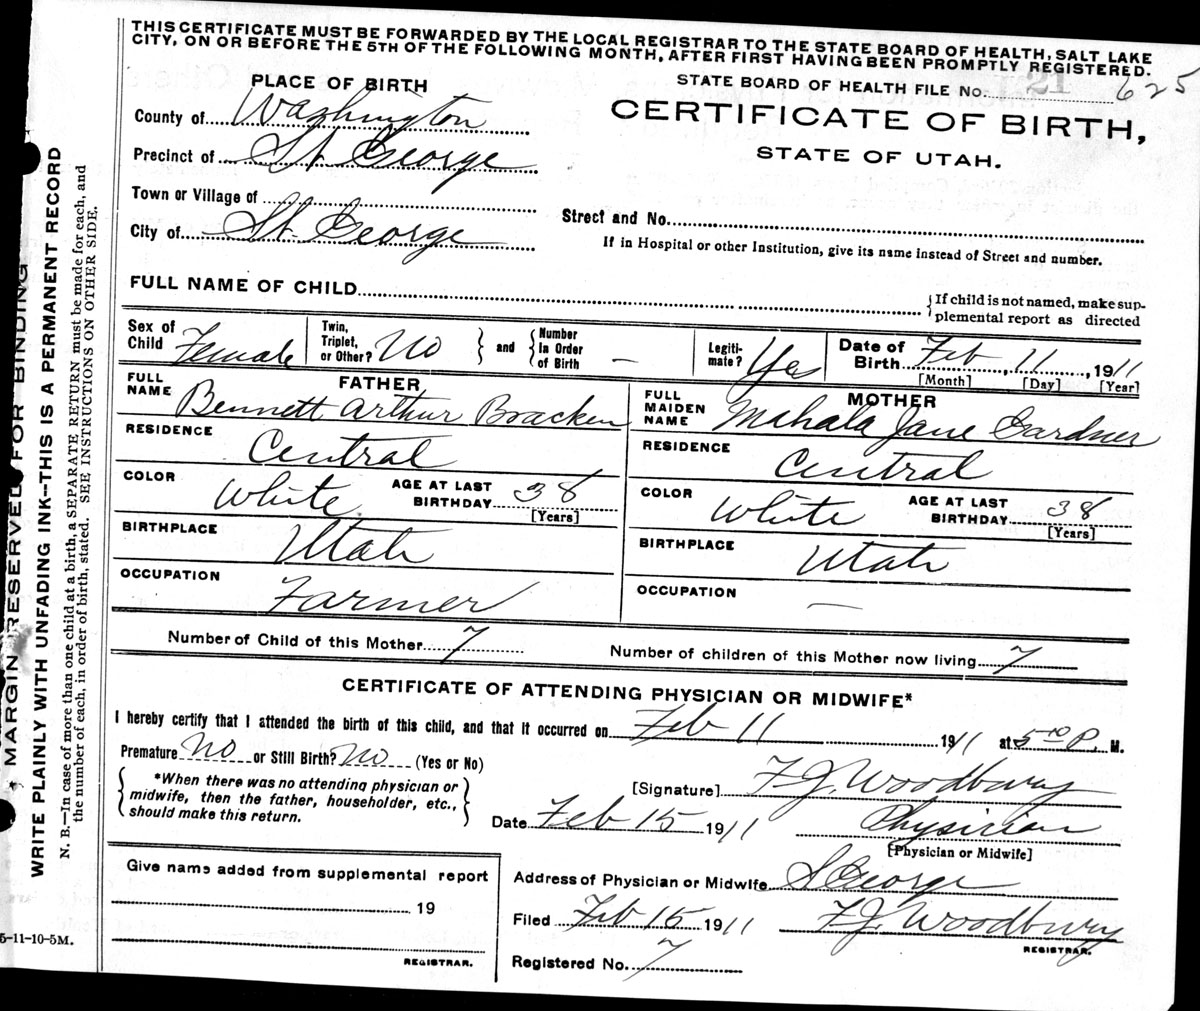 THIS CERTIFICATE MUST BE FORWARDED BY THE LOCAL REGISTRAR TO THE STATE BOARD OF HEALTH, SALT LAKE
CITY, ON OR BEFORE THE 5TH OF THE FOLLOWING MONTH, AFTER FIRST HAVING BEEN PROMPTLY REGISTERED.
PLACE OF BIRTH
STATE BOARD OF HEALTH FILE No. 21 625
County of Washington
CERTIFICATE OF BIRTH,
Precinct of St. George
STATE OF UTAH.
Town or Village of
Street and No.
City of St. George
If in Hospital or other Institution, give its name instead of Street and number.
FULL NAME OF CHILD
{If child is not named, make sup-
plemental report as directed
Sex of Child Female
Twin, Triplet, or Other? No } and { Number In Order of Birth –
Legiti- mate? Yes
Date of Birth Feb, 11, 1911
[Month] [Day] [Year]
FATHER
FULL NAME Bennett Arthur Bracken
MOTHER
FULL MAIDEN NAME Mahala Jane Gardner
RESIDENCE Central
RESIDENCE Central
COLOR White AGE AT LAST BIRTHDAY 38 [Years]
COLOR White AGE AT LAST BIRTHDAY 38 [Years]
BIRTHPLACE Utah
BIRTHPLACE Utah
OCCUPATION Farmer
OCCUPATION —
Number of Child of this Mother 7
Number of children of this Mother now living 7
CERTIFICATE OF ATTENDING PHYSICIAN OR MIDWIFE*
I hereby certify that I attended the birth of this child, and that it occurred on Feb 11 1911 at 5:00 P. M.
Premature No or Still Birth? No (Yes or No)
{ *When there was no attending physician or
midwife, then the father, householder, etc.,
should make this return. }
[Signature] F J. Woodbury
Date Feb 15 1911 Physician
[Physician or Midwife]
Give name added from supplemental report
19
REGISTRAR.
Address of Physician or Midwife St George
Filed Feb 15 1911 F. J. Woodbury
REGISTRAR.
Registered No. 7
5-11-10-5M.
MARGIN RESERVED FOR BINDING
WRITE PLAINLY WITH UNFADING INK—THIS IS A PERMANENT RECORD
N. B.—In case of more than one child at a birth, a SEPARATE RETURN must be made for each, and
the number of each, in order of birth, stated. SEE INSTRUCTIONS ON OTHER SIDE.